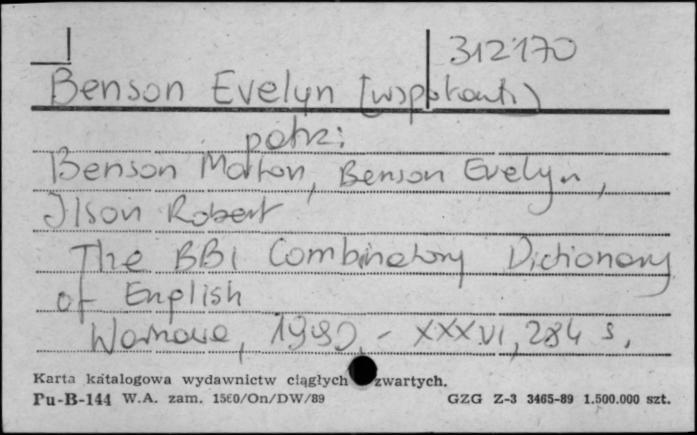 312170
Benson Evelyn (współaut.)
patrz:
Benson Morton, Benson Evelyn,
Ilson Robert
The BBI Combinatory Dictionary
of English
Warszawa, 1990, - XXXVI, 284 s.
Karta katalogowa wydawnictw ciągłych zwartych.
Pu-B-144 W.A. zam. 1560/On/DW/89 GZG Z-3 3465-89 1.500.000 szt.